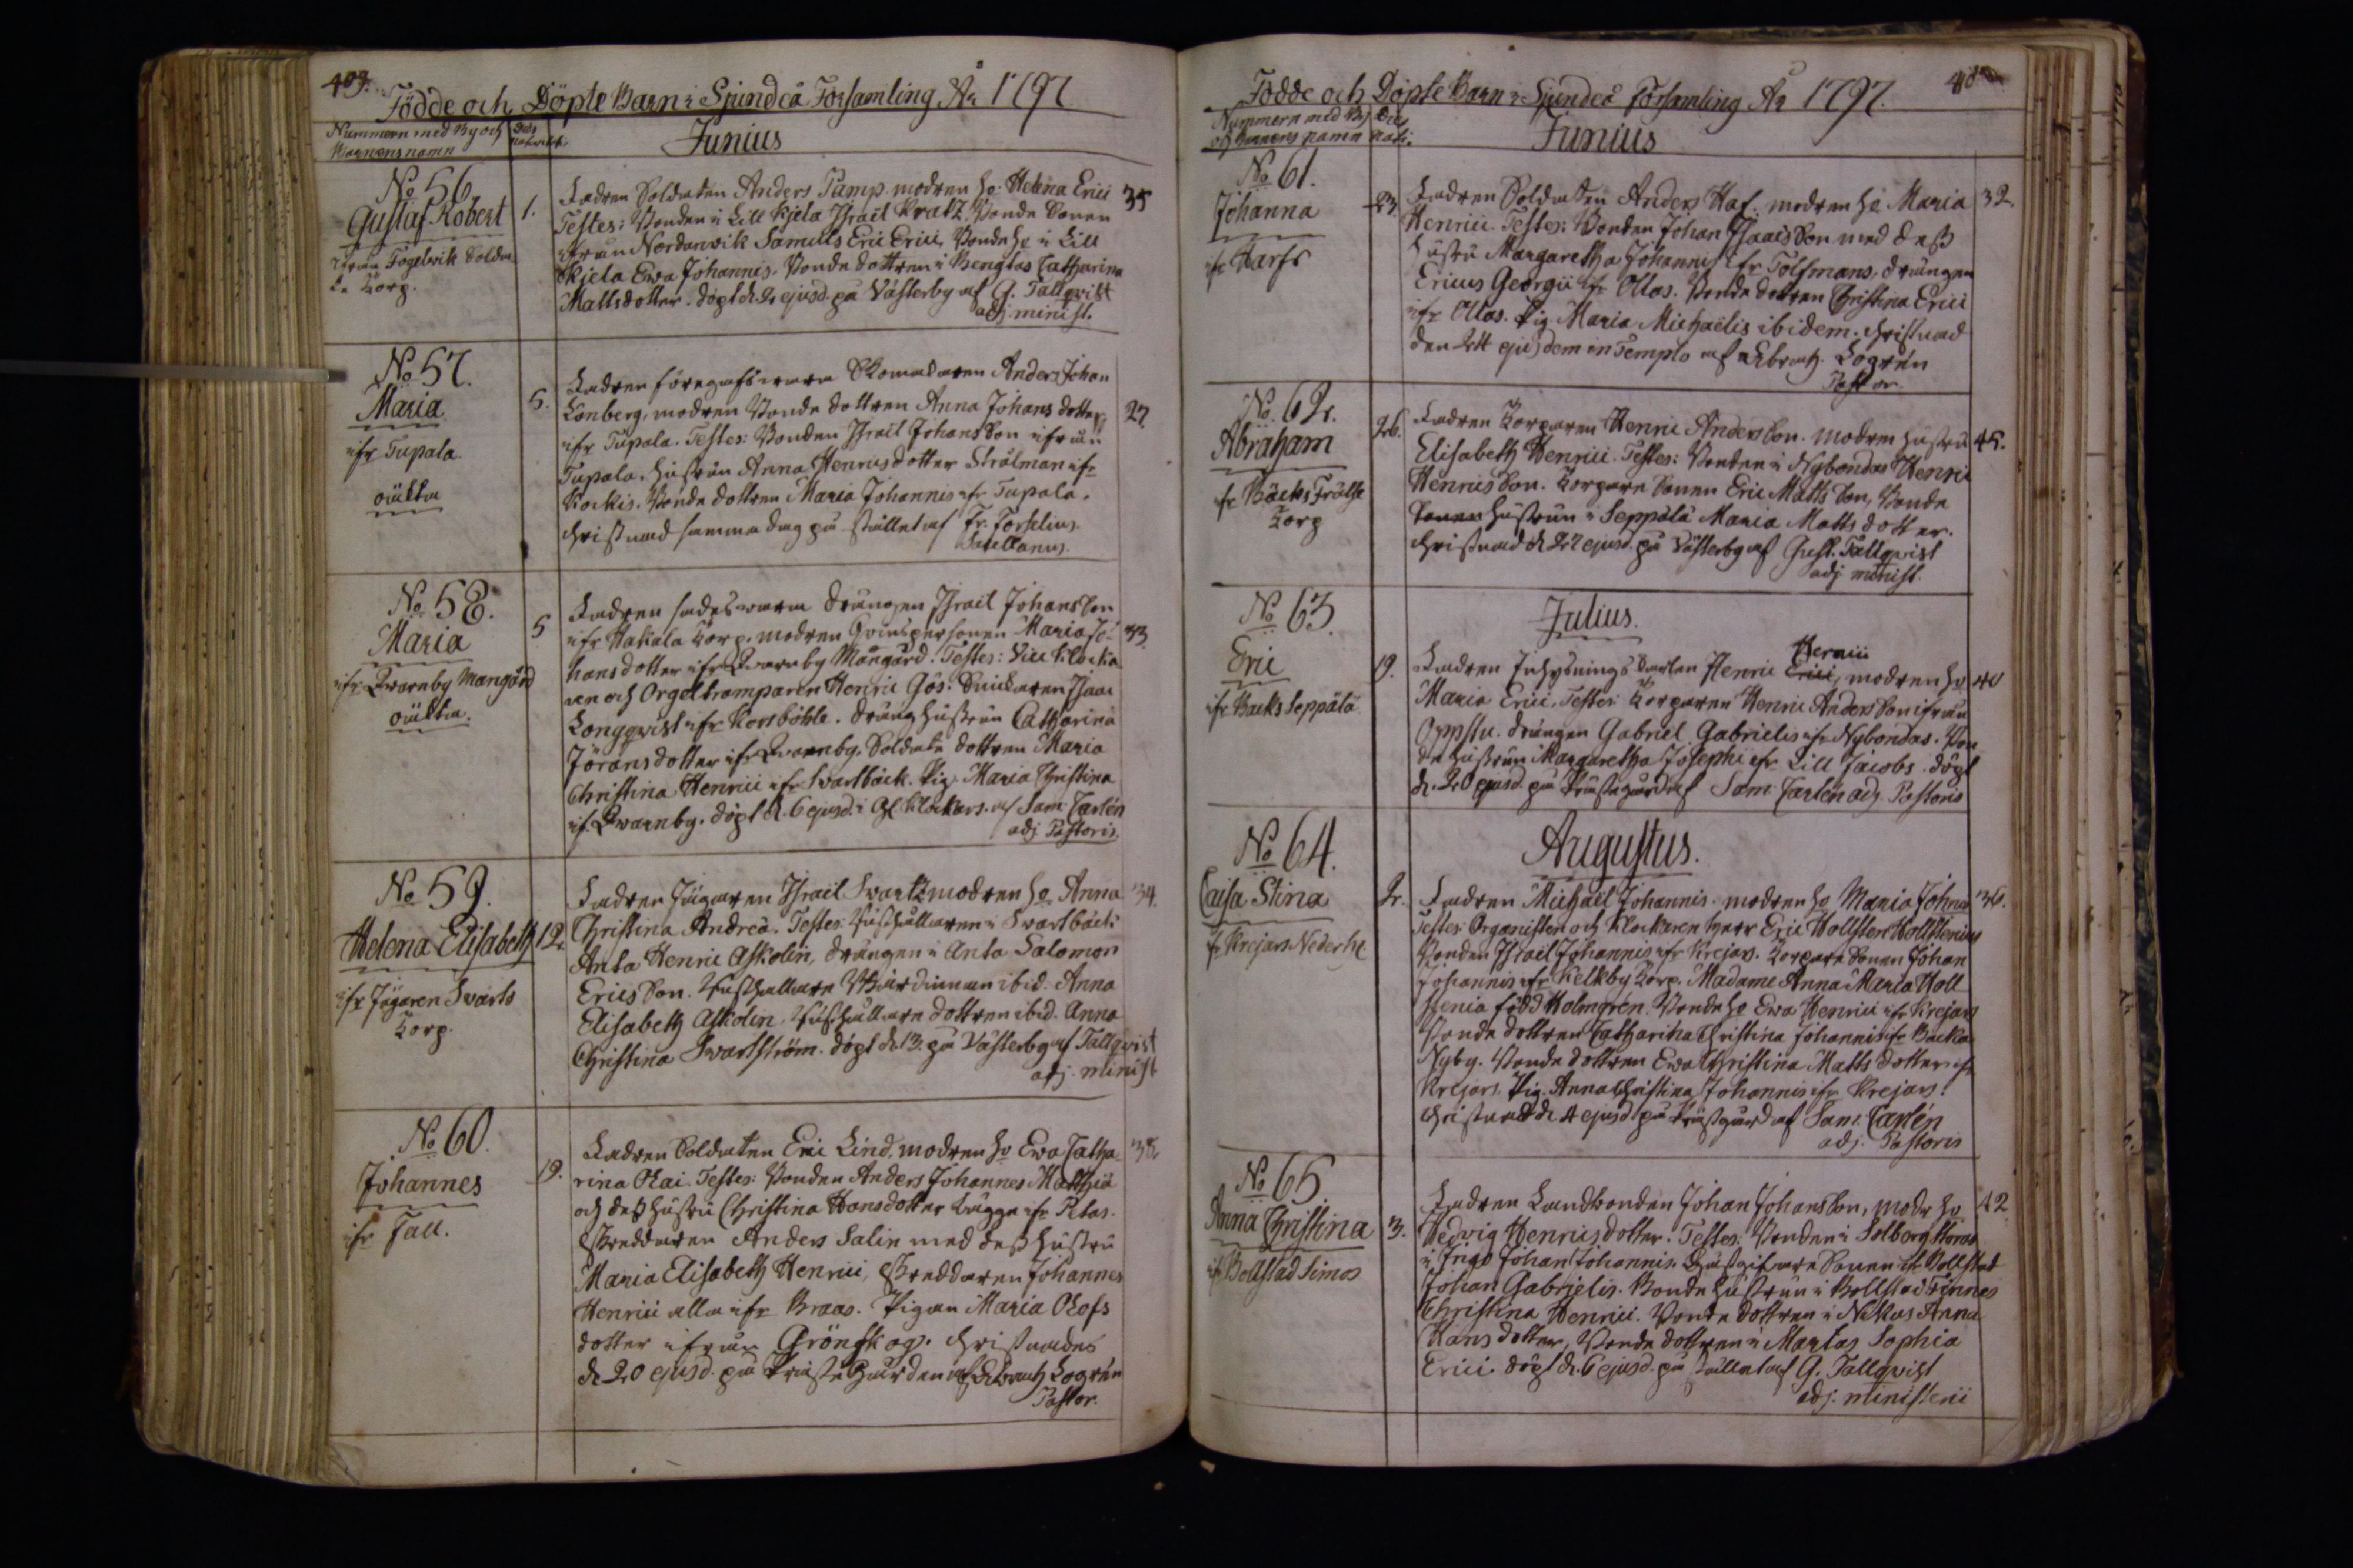 409.
Födde och Döpte Barn i Sjundeå Församling År 1797
Nummern med By och
Barnens namn
Junius
No 56
Gustaf Robert
ifrån Fogelwik Solda-
te Torp.
1.
Fadren Soldaten Anders Tamp. modren ho: Helena Erici
Testes: Bonden i Lill Kjela Israil Kratz, Bonde Sonen
ifrån Nordanwik Samuels Eric Erici, Bonde ho i Lill
Kjela Ewa Johannis, Bonde dottren i Bengtas Catharina
Mattsdotter. döpt d. 2 ejusd. på Västerby af G. Tallqvist
adj. minist.
35
No 57.
Maria
ifr Tupala
oäkta
5.
Fadren föregafs wara Skomakaren Anders Johan
Lönberg, modren Bonde dottren Anna Johans dotter
ifr Tupala. Testes: Bonden Israil Johans Son ifrån
Tupala. hustrun Anna Henricsdotter Strålman ifr
Kockis. Bonde dottren Maria Johannis ifr Tupala.
Christnad samma dag på stället af Fr. Forselius
Sacellanus.
27
No 58.
Maria
ifr Qwarnby Mangård
oäkta.
5
Fadren sades wara drängen Israil Johans Son
ifr Hakala Torp. modren Qwinspersonen Maria Jo-
hans dotter ifr Qwarnby Mangård. Testes: Vice Klocka
ren och Orgeltramparen Henric Gös. Snickaren Isaac
Longqwist ifr Korsböhle. dräng hustrun Catharina
Jöransdotter ifr Qwarnby. Soldate dottren Maria
Christina Henrici ifr Swartbäck. Pig. Maria Christina
if. Qwarnby. döpt d. 6 ejusd. i Gl. Klockars. af Sam Carlén
adj Pastoris.
33
No 59.
Helena Elisabeth
ifr Jägaren Swarts
Torp.
12.
Fadren Jägaren Israil Swartz modren ho Anna
Christina Andreæ. Testes: Rusthållaren i Swartbäck
Anta Henric Askolin, drängen i Anta Salomon
Erics Son. Rusthållare Wärdinnan ibid. Anna
Elisabeth Askolin. Rusthållare dottren ibid. Anna
Christina Swartström. döpt d. 13. på Västerby af Tallqvist
adj. minist
34.
No 60.
Johannes
ifr Tall.
19.
Fadren Soldaten Eric Lind. modren ho Ewa Catha-
rina Olai. Testes: Bonden Anders Johannes Matthiæ
och dess hustru Christina Hansdotter bägge ifr Pltas.
Skreddaren Anders Salin med dess hustru
Maria Elisabeth Henrici, Skreddaren Johannes
Henrici alla ifr Braas. Pigan Maria Olofs
dotter ifrån Grönskog. Christnades
d. 20 ejusd. på Prästegården af Abrah Logrén
Pastor.
38.
Födde och Döpte Barn i Sjundeå församling År 1797.
Nummern med By
och Barnens namn
Junius
No 61.
Johanna
ifr Karfs
23.
Fadren Soldaten Anders Haf. modren ho Maria
Henrici. Testes: Bonden Johan Isaacs Son med dess
hustru Margaretha Johannis ifr Tolfmans, drängen
Ericus Georgii ifr Ollas. Bonde dottren Christina Erici
ifr Ollas. Pig Maria Michaëlis ibidem. Christnad
den 24 ejusdem in Templo af Abrah. Logrén
Pastor.
32.
No 62.
Abraham
fr Bäcks Frälse
Torp
26.
Fadren Torparen Henric Anders Son. modren hustru
Elisabeth Henrici. Testes: Bonden i Nybondas Henric
Henrics Son. Torpare Sonen Eric Matts Son, Bonde
Sonen hustrun i Seppälä Maria Matts dotter.
Christnad d 27 ejusd. på Västerby af Gust. Tallqwist
adj minist.
45.
No 63.
Eric
ifr Backs Seppälä
Julius.
19.
Fadren Inhysnings Karlen Henric Erici Henrici, modren ho
Maria Erici. Testes: Torparen Henric Anders Son ifrån
Oppstu. drängen Gabriel Gabrielis ifr Nybondas. Bon
de hustrun Margaretha Josephi ifr Lill Jacobs. döpt
d. 20 ejusd. på Prästegård af Sam: Carlén adj. Pastoris
40
No 64.
Caisa Stina
fr Krejars Nederhe
Augustus.
2.
Fadren Michaël Johannis. modren ho Maria Johans
Testes: Organisten och Klockaren herr Eric Hollsten Hollstenius
Bonden Israil Johannis ifr Krejars. Torpare Sonen Johan
Johannis ifr Kelkby Torp. Madame Anna Maria Holl
stenia född Holmgrén. Bonde ho Ewa Henrici ifr Krejars
Bonde dottren Catharina Christina Johannis ifr Backa
Nyby. Bonde dottren Ewa Christina Matts dotter ifr
Krejars. Pig. Anna Christina Johannis ifr Krejars.
Christnad d. 4 ejusd. på Prästgård af Sam: Carlén
adj. Pastoris
36.
No 65.
Anna Christina
ifr Bollstad Simos
3.
Fadren Landbonden Johan Johans Son, modr. ho
Hedvig Henricsdotter. Testes: Bonden i Solberg
i Ingo Johan Johannis. Gästgifware Sonen ifr Bollstad
Johan Gabrielis. Bonde hustrun i Bollstad Finnes
Christina Henrici. Bonde dottren i Nickus Anna
Hans dotter, Bonde dottren i Martas Sophia
Erici. döpt d. 6 ejusd. på stället af G. Tallqvist
adj. ministerii
42